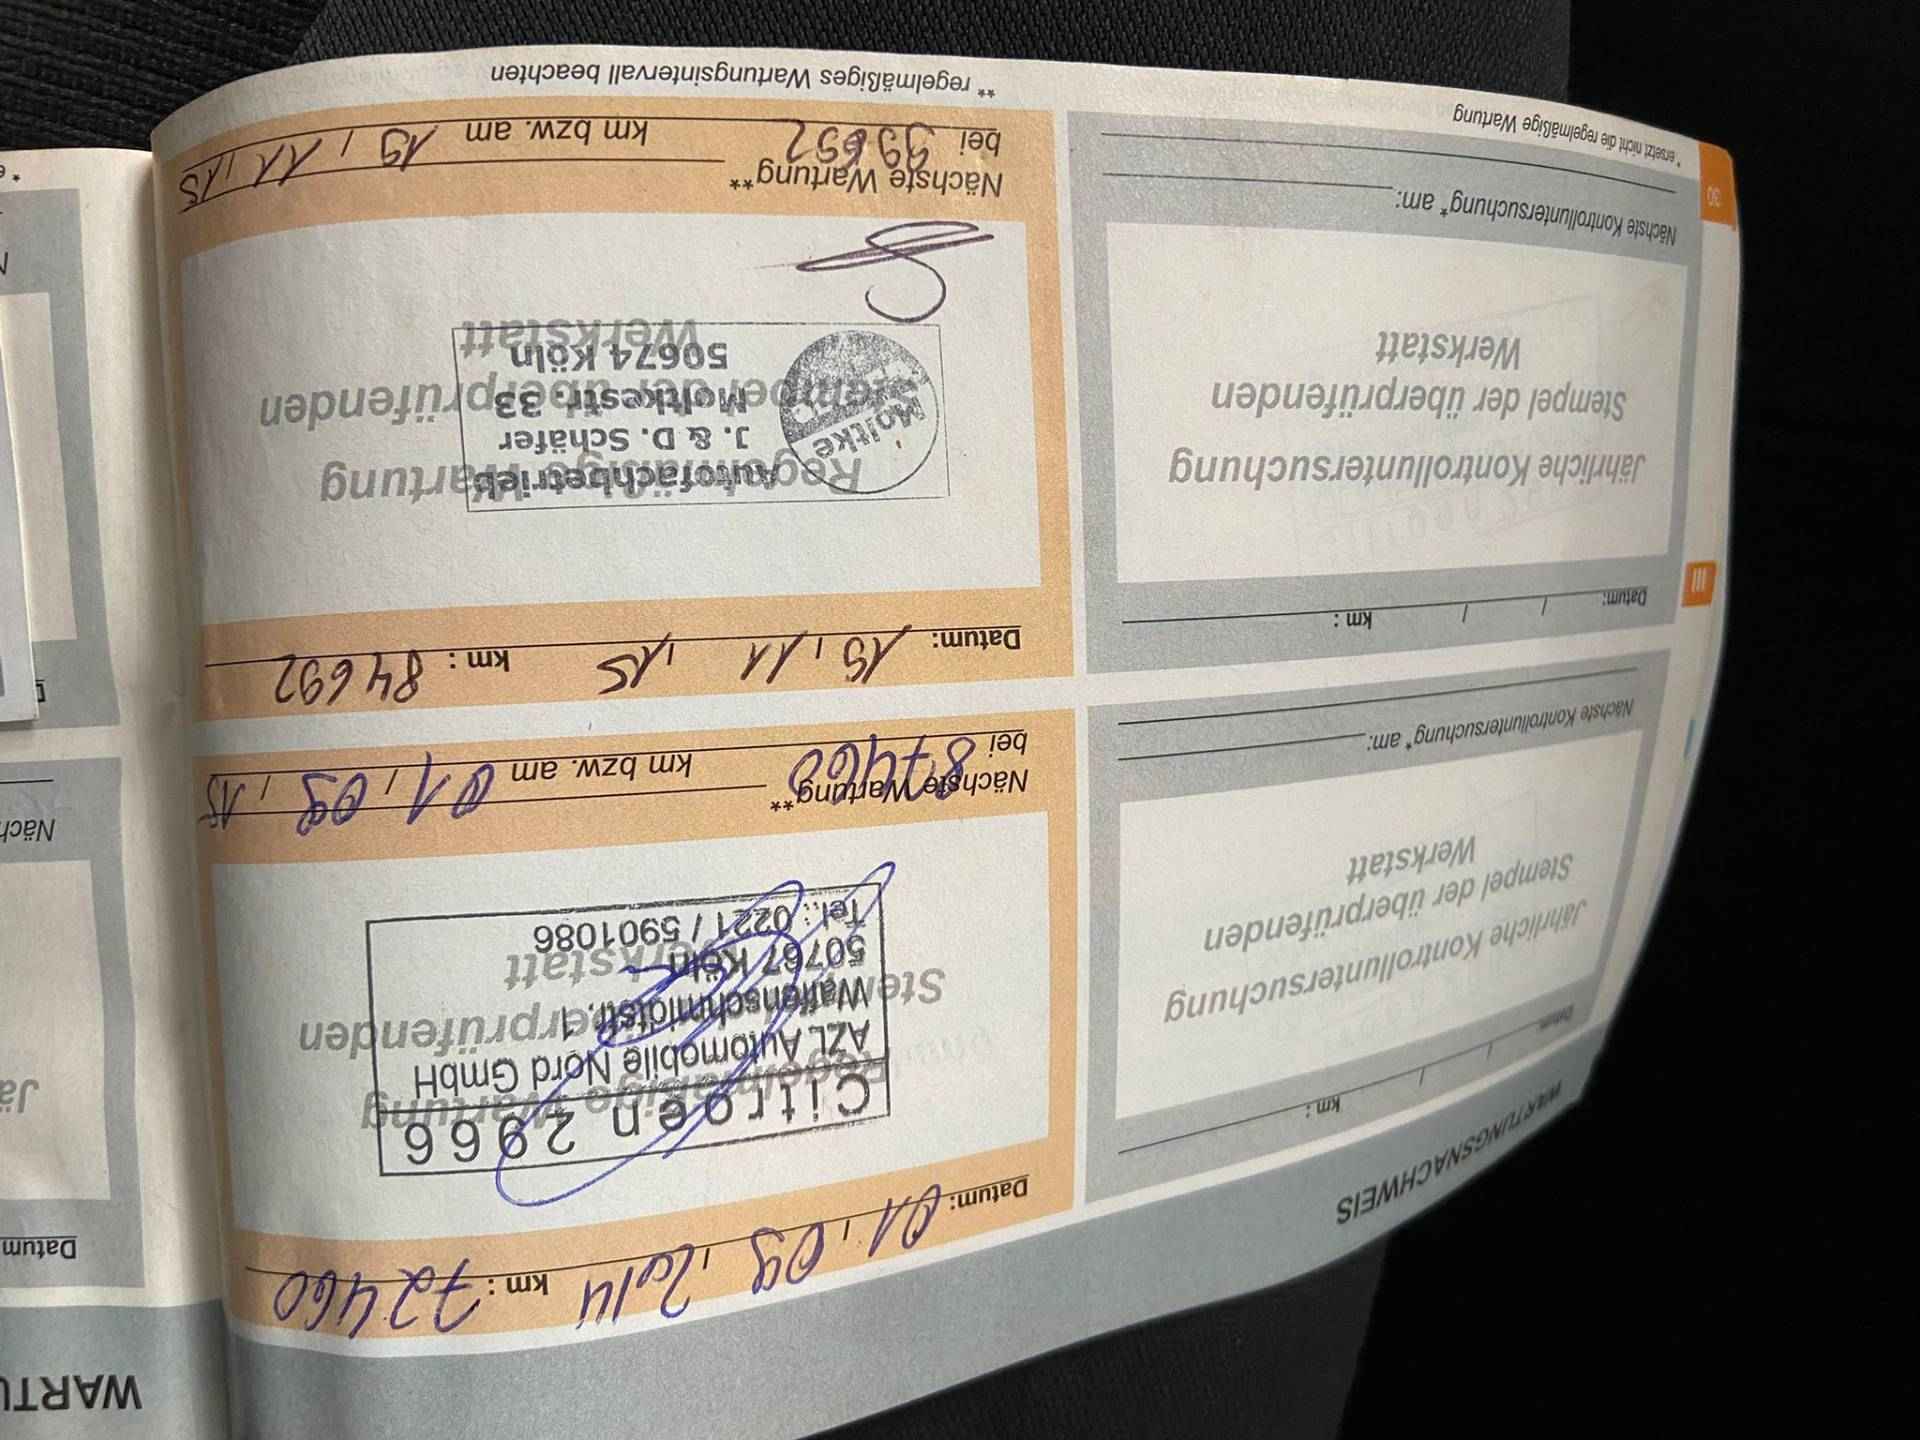 WARTUNGSNACHWEIS
Datum: / / km :
Jährliche Kontrolluntersuchung
Stempel der überprüfenden
Werkstatt
Nächste Kontrolluntersuchung* am:
Datum: / / km :
Jährliche Kontrolluntersuchung
Stempel der überprüfenden
Werkstatt
Nächste Kontrolluntersuchung* am:
* ersetzt nicht die regelmäßige Wartung
30
III
Datum: 01 / 09 / 2014 km : 72460
Regelmäßige Wartung
Stempel der überprüfenden
Werkstatt
Citroen 2966
AZL Automobile Nord GmbH
Waffenschmidtstr. 1
50767 Köln
Tel.: 0221 / 5901086
Nächste Wartung**
bei 87460 km bzw. am 01 / 09 / 15
Datum: 19 / 11 / 15 km : 84692
Regelmäßige Wartung
Stempel der überprüfenden
Werkstatt
Moltke
Autofachbetrieb
J. & D. Schäfer
Moltkestr. 33
50674 Köln
Nächste Wartung**
bei 99692 km bzw. am 19 / 11 /
** regelmäßiges Wartungsintervall beachten
WARTU
Datum
Jä
Näch